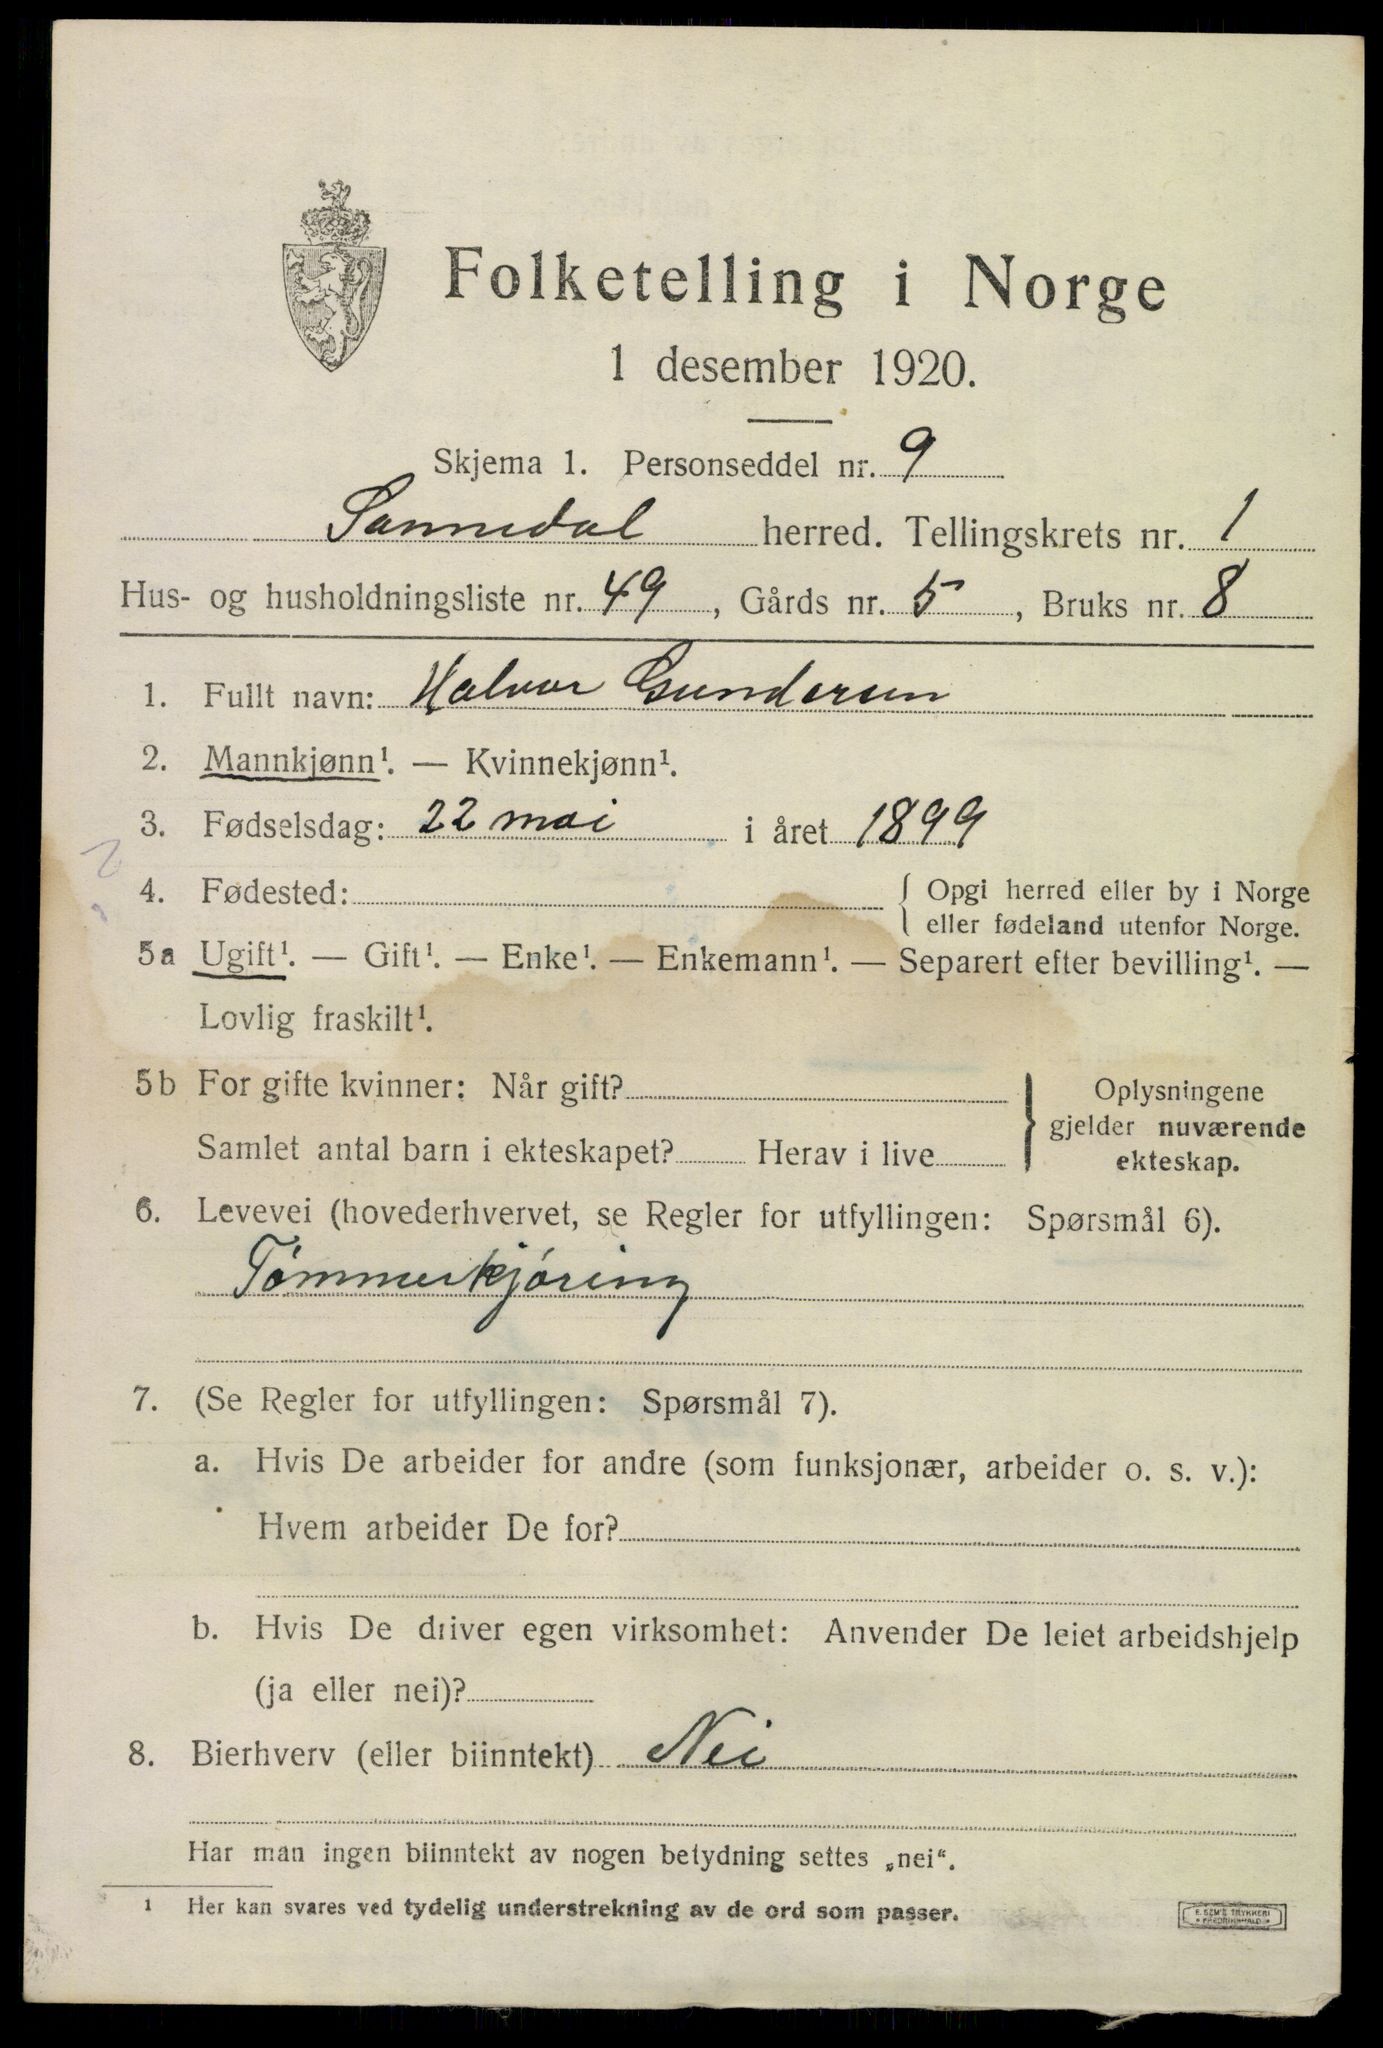 Folketelling i Norge
1 desember 1920.
Skjema 1. Personseddel nr. 9
Sannidal herred. Tellingskrets nr. 1
Hus- og husholdningsliste nr. 49, Gårds nr. 5, Bruks nr. 8
1. Fullt navn: Halvor Gundersen
2. Mannkjønn¹. — Kvinnekjønn¹.
3. Fødselsdag: 22 mai i året 1899
4. Fødested: { Opgi herred eller by i Norge
eller fødeland utenfor Norge.
5a Ugift¹. — Gift¹. — Enke¹. — Enkemann¹. — Separert efter bevilling¹. —
Lovlig fraskilt¹.
5b For gifte kvinner: Når gift? } Oplysningene
gjelder nuværende
Samlet antal barn i ekteskapet? Herav i live ekteskap.
6. Levevei (hovederhvervet, se Regler for utfyllingen: Spørsmål 6).
Tømmerkjøring
7. (Se Regler for utfyllingen: Spørsmål 7).
a. Hvis De arbeider for andre (som funksjonær, arbeider o. s. v.):
Hvem arbeider De for?
b. Hvis De driver egen virksomhet: Anvender De leiet arbeidshjelp
(ja eller nei)?
8. Bierhverv (eller biinntekt) Nei
Har man ingen biinntekt av nogen betydning settes „nei“.
1 Her kan svares ved tydelig understrekning av de ord som passer.
E. SEM'S TRYKKERI
FREDRIKSHALD